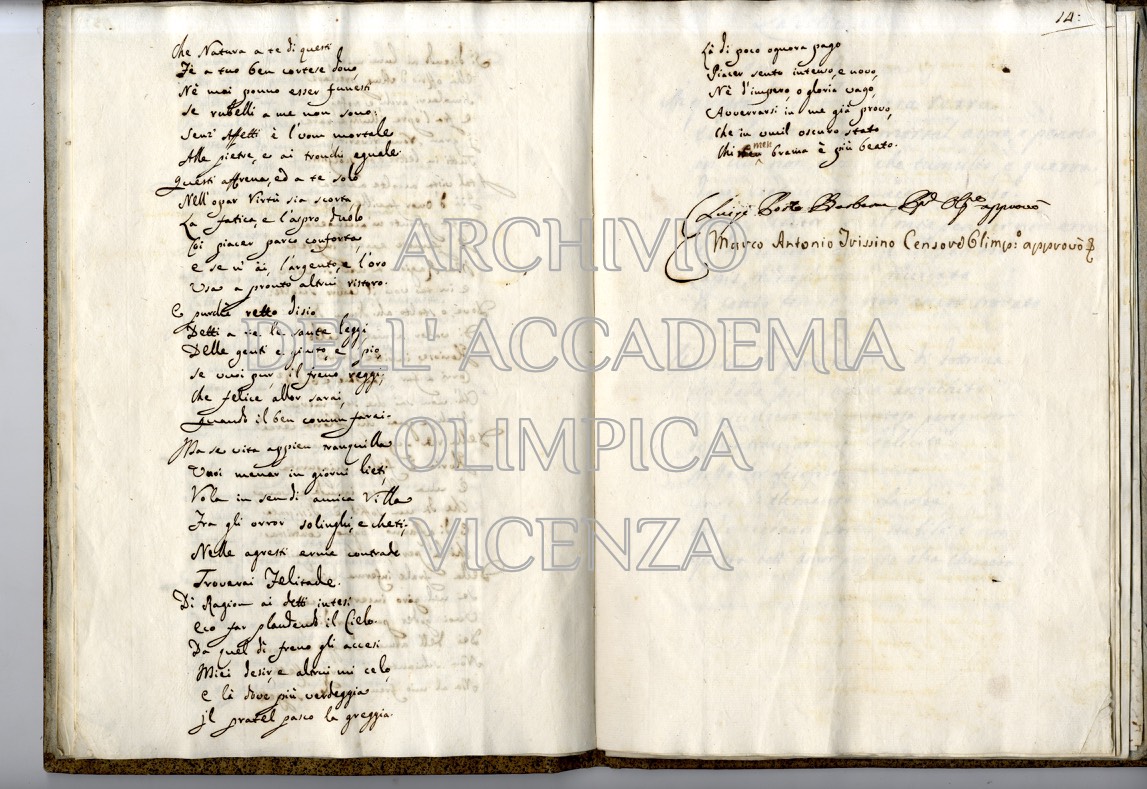 Che Natura a te di questi
Fè a tuo ben cortese dono,
Nè mai ponno esser funesti
Se rubelli a me non sono:
Senz' Affetti è l'uom mortale
Alle pietre, e ai tronchi eguale.
Questi affrena, ed a te solo
Nell'oprar Virtù sia scorta,
La fatica, e l'aspro duolo
Coi piacer parco conforta,
e se n' ài, l'argento, e l'oro
Usa a pronto altrui ristoro.
E purchè retto disio
Detti a te le sante leggi
Delle genti e giusto, e pio,
se vuoi pur, il freno reggi,
Che felice allor sarai,
Quando il ben comun farai.
Ma se vita appien tranquilla
Vuoi menar in giorni lieti,
Vola in sen di amica Villa
Fra gli orror solinghi, e cheti;
Nelle agresti erme contrade
Troverai Felitade.
Di Ragion ai detti intesi
Eco far plaudendo il Cielo.
Da quel dì freno gli accesi
Miei desir, e altrui mi celo,
e là dove più verdeggia
il pratel pasco la greggia.
14:
Là di poco ognora pago
Piacer sento intenso, e novo,
Nè d'impero, o gloria vago,
Avverrarsi in me già provo,
Che in umil oscuro stato
Chi men brama è più beato.
Luigi Porto Barbaran approvò
Marco Antonio Trissino Censore Olimp:º approvò
ARCHIVIO
DELL' ACCADEMIA
OLIMPICA
VICENZA